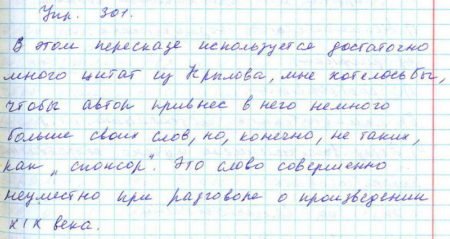 Упр. 301.
В этом пересказе используется достаточно
много цитат из Крылова, мне хотелось бы,
чтобы автор привнес в него немного
больше своих слов, но, конечно, не таких,
как „спонсор". Это слово совершенно
неуместно при разговоре о произведении
XIX века.